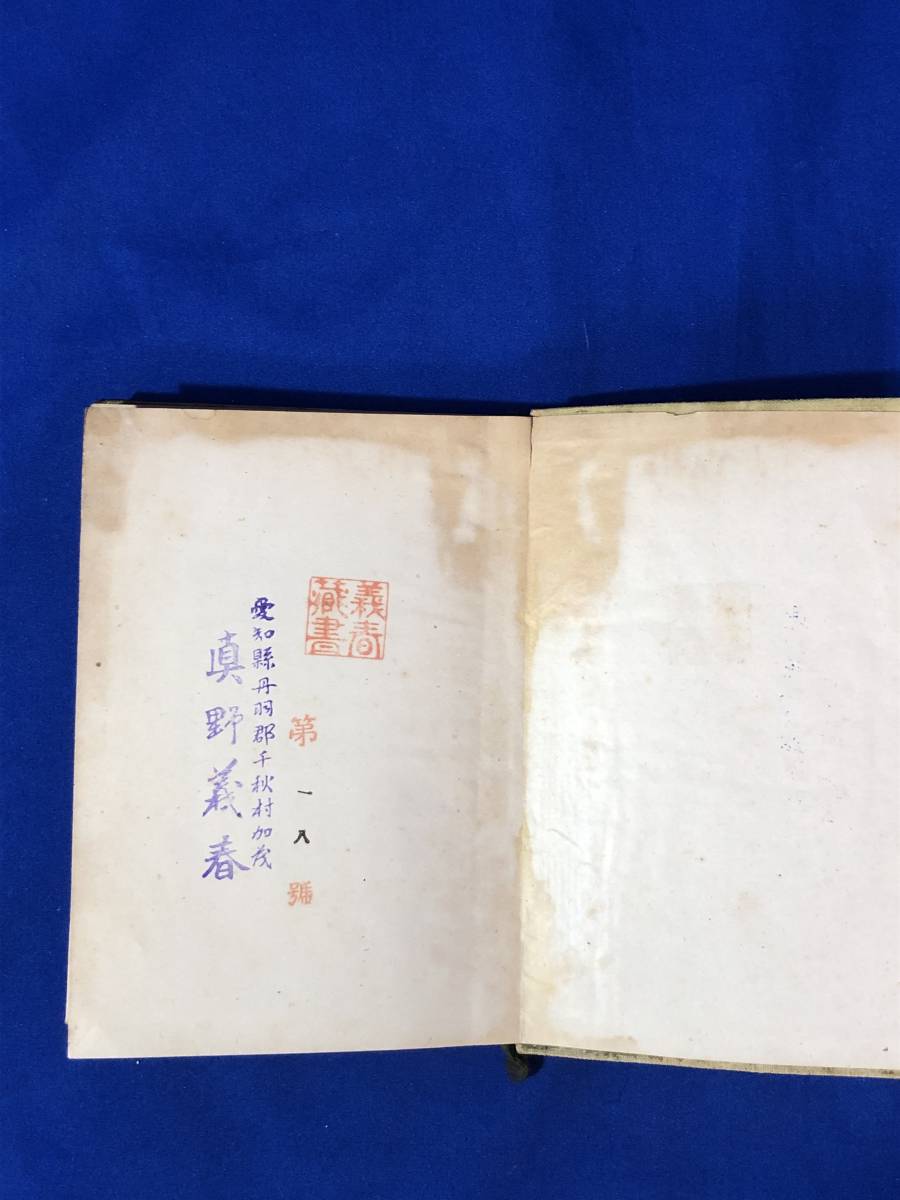 義春
藏書
第一八號
愛知縣丹羽郡千秋村加茂
真野義春